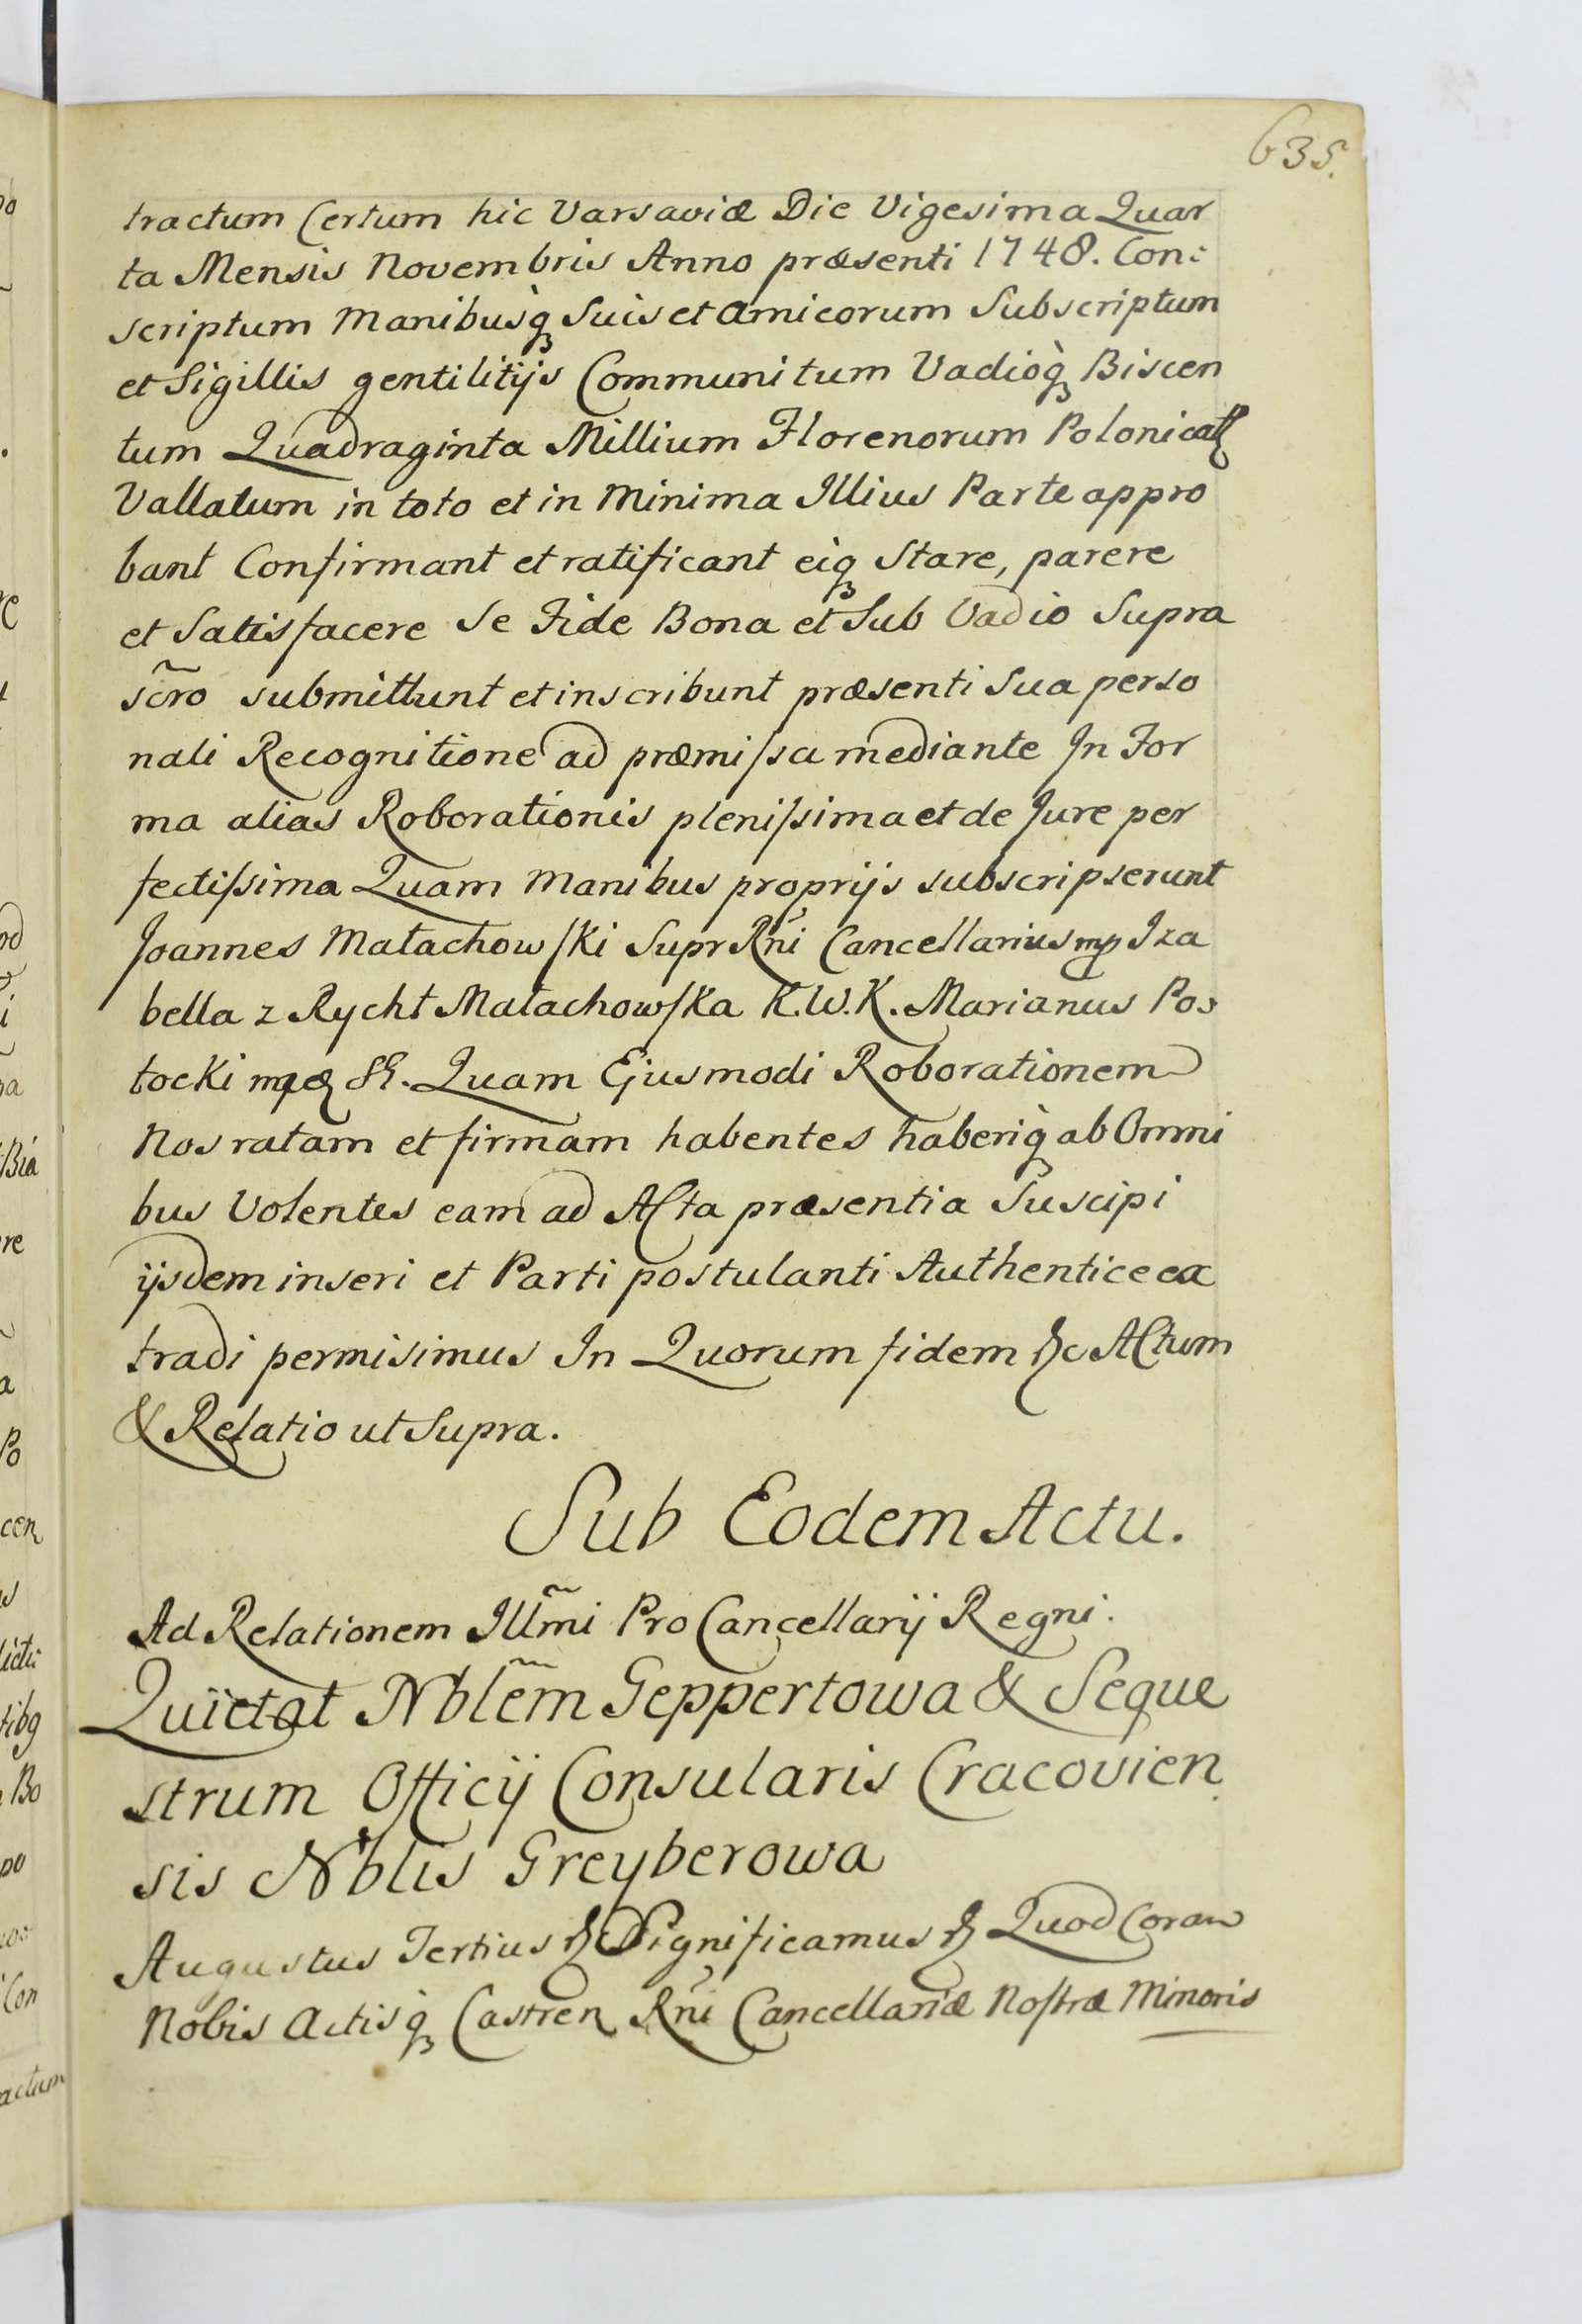 635.
tractum Certum hic Varsaviæ Die Vigesima Quar
ta Mensis Novembris Anno præsenti 1748. Con:
scriptum Manibusq̀ Suis et Amicorum Subscriptum
et Sigillis gentilitijs Communitum Vadioq̀ Biscen
tum Quadraginta Millium Florenorum Polonical
Vallatum in toto et in Minima Illius Parte appro
bant Confirmant et ratificant eiq̀ Stare, parere
et Satisfacere Se Fide Bona et Sub Vadio Supra
scr̃o submittunt et inscribunt præsenti Sua perso
nali Recognitione ad præmissa mediante In For
ma alias Roborationis plenissima et de Jure per
fectissima Quam Manibus proprijs subscripserunt
Joannes Małachowski Supr Rñi Cancellarius mp Iza
bella z Rycht Małachowska K.W.K. Marianus Po:
tocki mp Quam Ejusmodi Roborationem
Nos ratam et firmam habentes haberiq̀ ab Omni
bus Volentes eam ad Acta præsentia Suscipi
ijsdem inseri et Parti postulanti Authentice ex
tradi permisimus In Quorum fidem &c Actum
& Relatio ut Supra.
Sub Eodem Actu.
Ad Relationem Illm̃i Pro Cancellarij Regni.
Quietat Nblẽm Geppertowa & Seque
strum Officij Consularis Cracovien
sis Nblis Greyberowa
Augustus Tertius &c Significamus &c Quod Coram
Nobis Actisq̀ Castren Rñi Cancellariæ Nostræ Minoris